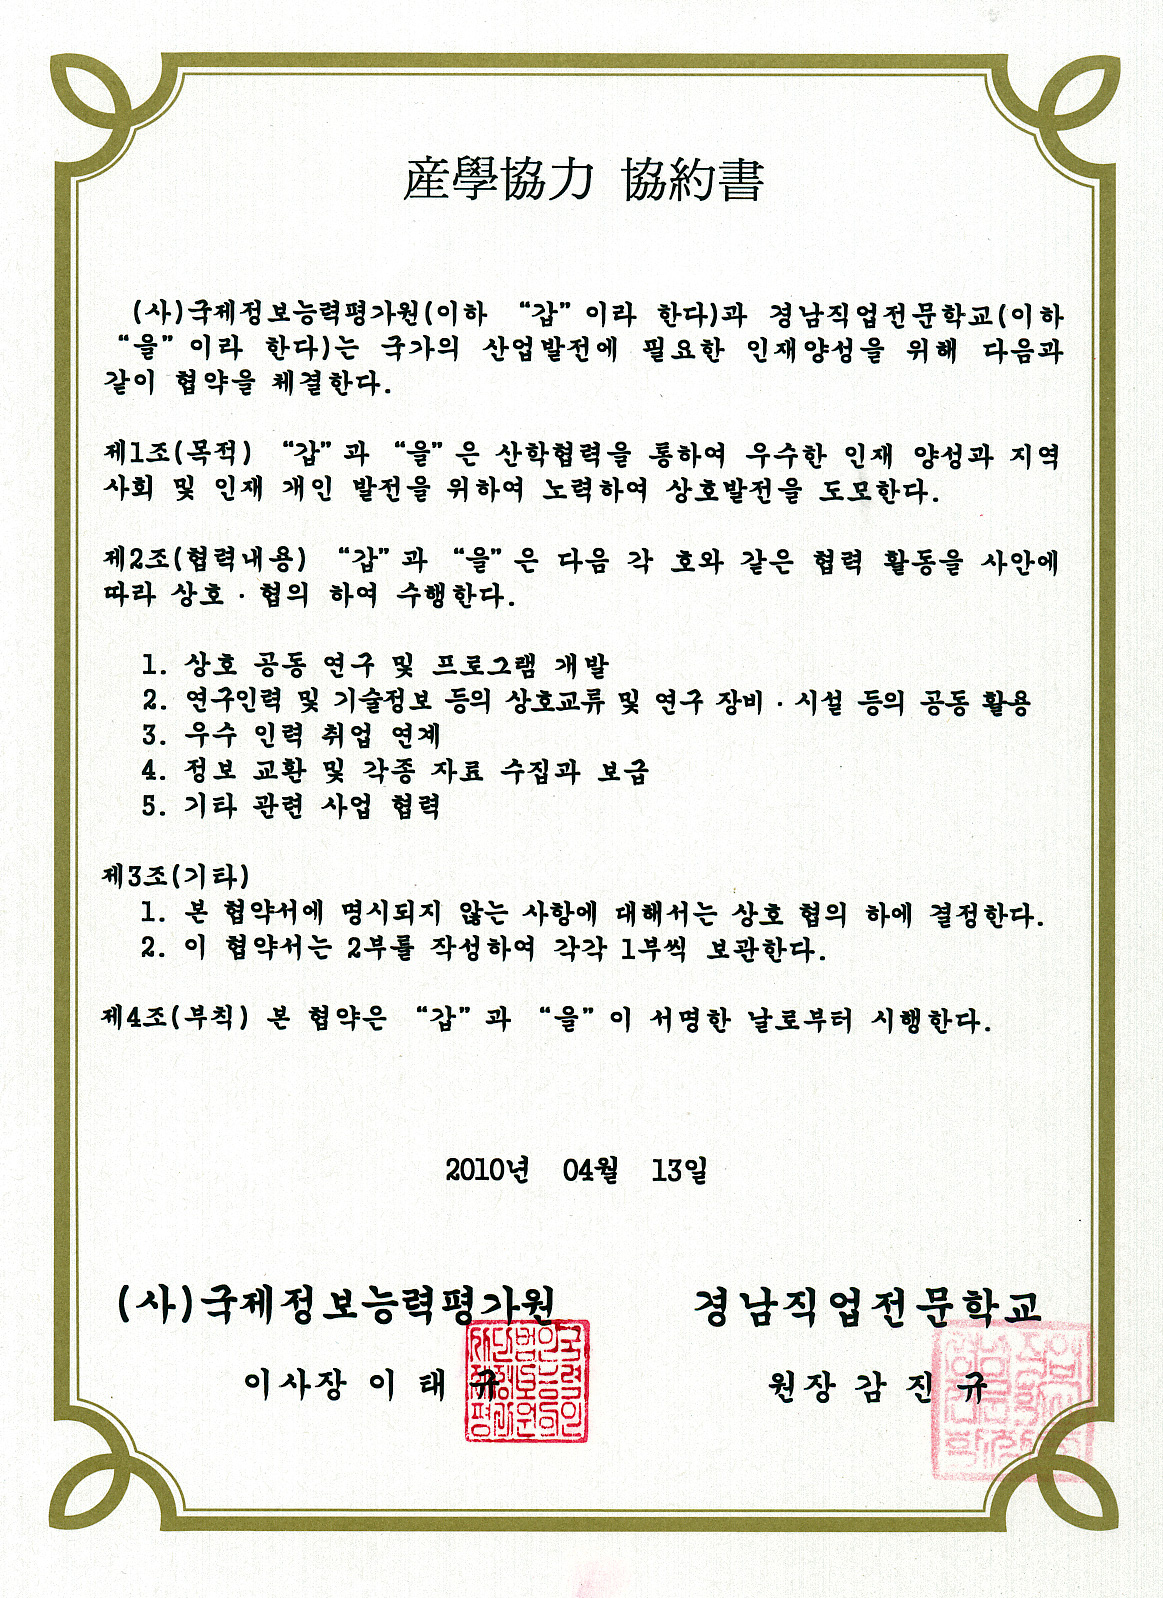 産學協力 協約書
(사)국제정보능력평가원(이하 “갑”이라 한다)과 경남직업전문학교(이하
“을”이라 한다)는 국가의 산업발전에 필요한 인재양성을 위해 다음과
같이 협약을 체결한다.
제1조(목적) “갑”과 “을”은 산학협력을 통하여 우수한 인재 양성과 지역
사회 및 인재 개인 발전을 위하여 노력하여 상호발전을 도모한다.
제2조(협력내용) “갑”과 “을”은 다음 각 호와 같은 협력 활동을 사안에
따라 상호·협의 하여 수행한다.
1. 상호 공동 연구 및 프로그램 개발
2. 연구인력 및 기술정보 등의 상호교류 및 연구 장비·시설 등의 공동 활용
3. 우수 인력 취업 연계
4. 정보 교환 및 각종 자료 수집과 보급
5. 기타 관련 사업 협력
제3조(기타)
1. 본 협약서에 명시되지 않는 사항에 대해서는 상호 협의 하에 결정한다.
2. 이 협약서는 2부를 작성하여 각각 1부씩 보관한다.
제4조(부칙) 본 협약은 “갑”과 “을”이 서명한 날로부터 시행한다.
2010년 04월 13일
(사)국제정보능력평가원 경남직업전문학교
이사장 이 태 규 원장 감 진 규